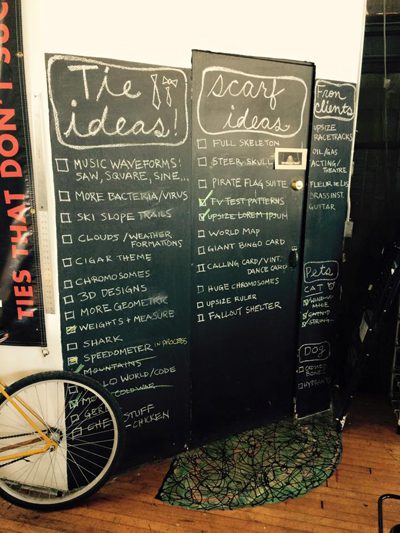 TIES THAT DON'T SUC
Tie
ideas!
MUSIC WAVEFORMS!
SAW, SQUARE, SINE...
MORE BACTERIA/VIRUS
SKI SLOPE TRAILS
CLOUDS/WEATHER
FORMATIONS
CIGAR THEME
CHROMOSOMES
3D DESIGNS
MORE GEOMETRIC
WEIGHTS + MEASURE
SHARK
SPEEDOMETER IN PROCESS
MOUNTAINS
LO WORLD/CODE
COLD WAR
STUFF
-CHICKEN
Scarf
ideas
FULL SKELETON
STEER SKULL
PIRATE FLAG SUITE
TV TEST PATTERNS
UPSIZE LOREM IPSUM
WORLD MAP
GIANT BINGO CARD
CALLING CARD/VINT.
DANCE CARD
HUGE CHROMOSOMES
UPSIZE RULER
FALLOUT SHELTER
From
clients
UPSIZE
RACETRACKS
OIL/GAS
ACTING/
THEATRE
FLEUR DE LIS
BRASS INST.
GUITAR
Pets
CAT
CATNIP
STRING
DOG
BONE